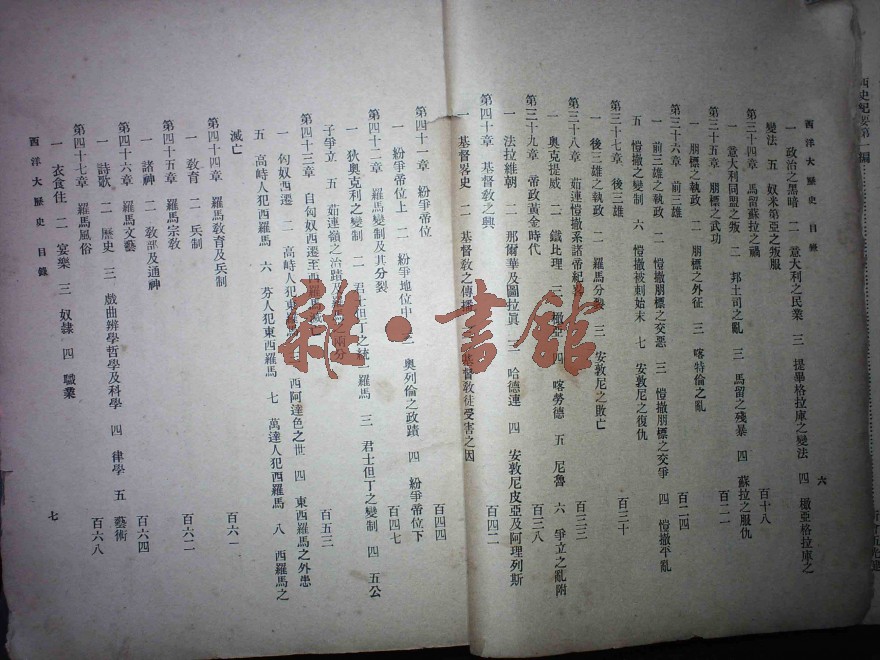 西史紀要第一編
西洋大歷史 目錄 六
一 政治之黑暗 二 意大利之民業 三 提畢格拉庫之變法 四 橄亞格拉庫之
變法 五 奴米第亞之叛服 百十八
第三十四章 馬留蘇拉之禍
一 意大利同盟之叛 二 邦土司之亂 三 馬留之殘暴 四 蘇拉之服仇
第三十五章 朋標之武功 百二一
一 朋標之執政 二 朋標之外征 三 喀特倫之亂
第三十六章 前三雄 百二四
一 前三雄之執政 二 愷撒朋標之交惡 三 愷撒朋標之交爭 四 愷撒平亂
五 愷撒之變制 六 愷撒被刺始末 七 安敦尼之復仇
第三十七章 後三雄 百三十
一 後三雄之執政 二 羅馬分 三 安敦尼之敗亡
第三十八章 茹連愷撒系諸帝紀 百三三
一 奧克提威 二 鐵比理 三 四 喀勞德 五 尼魯 六 爭立之亂附
第三十九章 帝政黃金時代 百三八
一 法拉維朝 二 那爾華及圖拉眞 三 哈德連 四 安敦尼皮亞及阿理列斯
第四十章 基督敎之興 百四二
一 基督畧史 二 基督敎之傳 基督敎徒受害之因
第四十一章 紛爭帝位 百四四
一 紛爭帝位上 二 紛爭地位中 三 奧列倫之政蹟 四 紛爭帝位下
第四十二章 羅馬變制及其分裂 百四七
一 狄奧克利之變制 二 君士但丁之統一羅馬 三 君士但丁之變制 四 五公
子爭立 五 茹連嶺之治蹟及 之兩分
第四十三章 自匈奴西遷至西羅馬滅亡 百五三
一 匈奴西遷 二 高峙人犯東 西阿達色之世 四 東西羅馬之外患
五 高峙人犯西羅馬 六 芬人犯東西羅馬 七 萬達人犯西羅馬 八 西羅馬之
滅亡
第四十四章 羅馬敎育及兵制 百六一
一 敎育 二 兵制
第四十五章 羅馬宗敎 百六二
一 諸神 二 敎部及通神
第四十六章 羅馬文藝 百六四
一 詩歌 二 歷史 三 戲曲辨學哲學及科學 四 律學 五 藝術
第四十七章 羅馬風俗 百六八
一 衣食住 二 宴樂 三 奴隸 四 職業
西洋大歷史 目錄 七
雜·書館